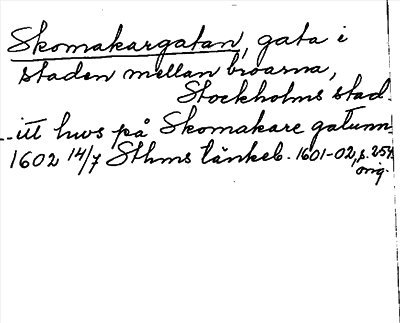 Skomakargatan, gata i
staden mellan broarna,
Stockholms stad.
itt huvs på Skomakare gatunn
1602 14/7 Sthms tänkeb. 1601-02, s. 254
orig.